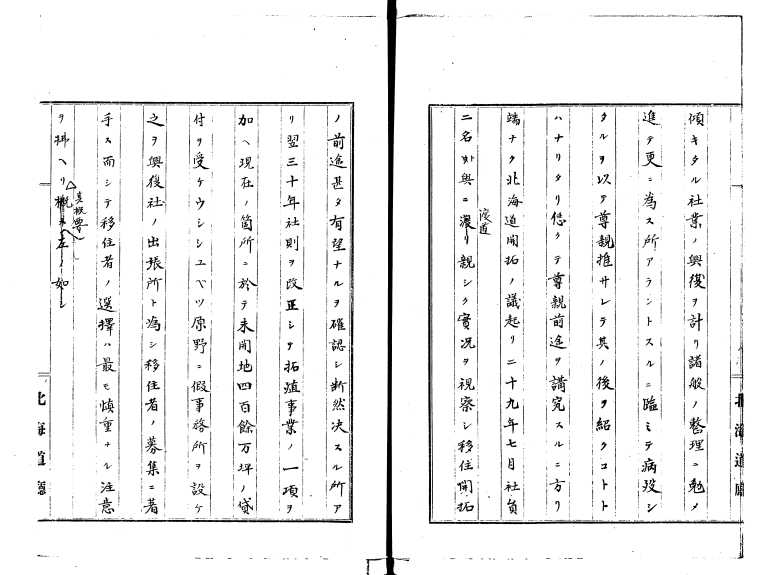 傾キタル社業ノ興復ヲ計リ諸般ノ整理ニ勉メ
進テ更ニ為ス所アラントスルニ臨ミテ病歿シ
タルヲ以テ尊親推サレテ其ノ後ヲ紹クコトト
ハナリタリ恁クテ尊親前途ヲ講究スルニ方リ
端ナク北海道開拓ノ議起リ二十九年七月社員
二名ト與ニ渡道
濃リ親シク實況ヲ視察シ移住開拓
ノ前途甚タ有望ナルヲ確認シ断然決スル所ア
リ翌三十年社則ヲ改正シテ拓殖事業ノ一項ヲ
加ヘ現在ノ箇所ニ於テ未開地四百餘万坪ノ貸
付ヲ受ケウシシュベツ原野ニ假事務所ヲ設ケ
之ヲ興復社ノ出張所ト為シ移住者ノ募集ニ著
手ス而シテ移住者ノ選擇ハ最モ慎重ナル注意
ヲ拂ヘリ其概要
概ネ左ノ如シ
北海道廳
北海道廳